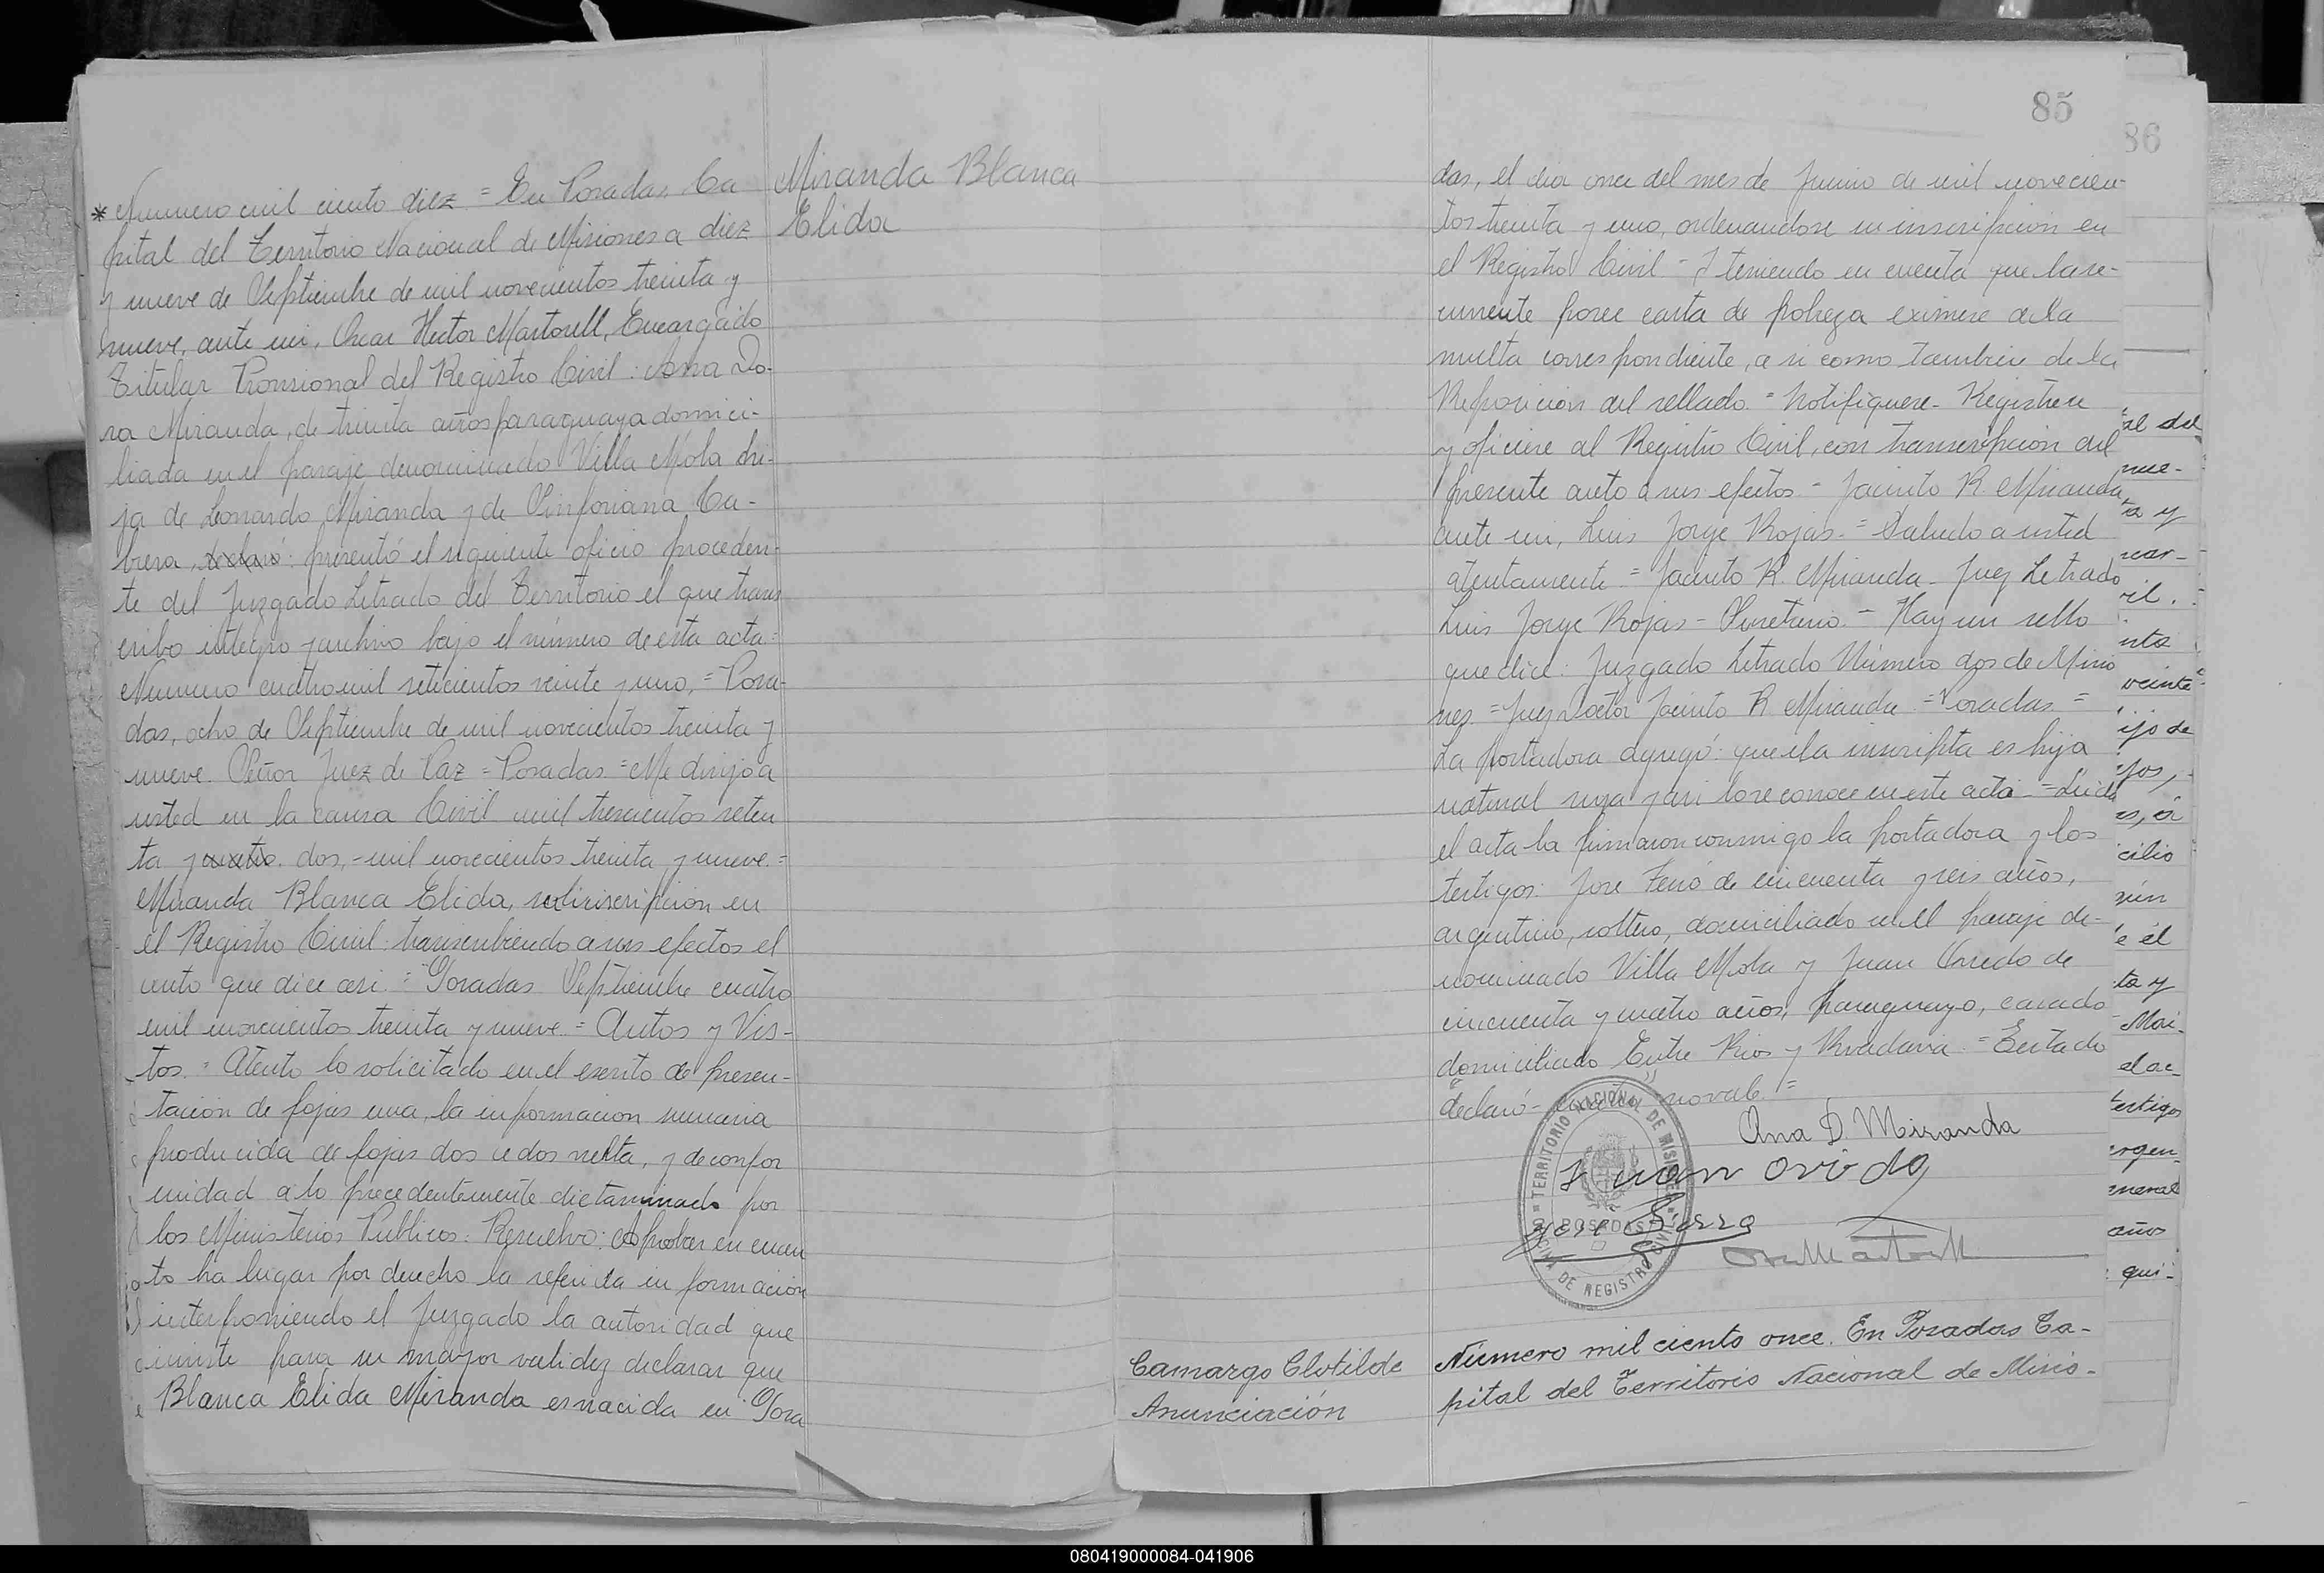 85
86
Miranda Blanca
Elida
* Numero mil ciento diez = En Posadas, Ca
pital del Territorio Nacional de Misiones a diez
y nueve de Septiembre de mil novecientos treinta y
nueve, ante mi, Oscar Hector Martorell, Encargado
Titular Provisional del Registro Civil: Ana Do-
ra Miranda, de treinta años paraguaya domici-
liada en el paraje denominado Villa Mola hi-
ja de Leonardo Miranda y de Sinforiana Ca-
brera, declaró: presentó el siguiente oficio proceden-
te del Juzgado Letrado del Territorio el que trans
cribo integro y archivo bajo el número de esta acta =
Numero cuatro mil setecientos veinte y uno, = Posa-
das, ocho de Septiembre de mil novecientos treinta y
nueve. Señor Juez de Paz = Posadas = Me dirijo a
usted en la causa Civil mil trescientos seten
ta y cuatro. dos, - mil novecientos treinta y nueve. =
Miranda Blanca Elida, inscripcion en
el Registro Civil: transcribiendo a sus efectos el
auto que dice asi: = Posadas Septiembre cuatro
mil novecientos treinta y nueve = Autos y Vis-
tos. = Atento lo solicitado en el escrito de presen-
tación de fojas una, la informacion sumaria
producida de fojas dos a dos vuelta, y de confor
midad a lo precedentemente dictaminado por
los Ministerios Publicos: Resuelvo: Aprobar en cuan
to ha lugar por derecho la referida informacion
interponiendo el Juzgado la autoridad que
inviste para su mayor validez declarar que
Blanca Elida Miranda es nacida en Posa
das, el dia once del mes de Junio de mil novecien-
tos treinta y uno, ordenandose su inscripcion en
el Registro Civil - Y teniendo en cuenta que la re-
currente posee carta de pobreza eximese de la
multa correspondiente, asi como tambien de la
Reposicion del sellado. = Notifiquese - Registrese
y oficiese al Registro Civil, con transcripcion del
presente auto a sus efectos - Jacinto R. Miranda
ante mi, Luis Jorge Rojas. = Saludo a usted
atentamente = Jacinto R. Miranda - Juez Letrado
Luis Jorge Rojas - Secretario - Hay un sello
que dice: Juzgado Letrado Número dos de Misio
nes. = Juez Doctor Jacinto R. Miranda = Posadas =
La portadora agregó: que la inscripta es hija
natural suya y asi lo reconoce en este acta - Leida
el acta la firmaron conmigo la portadora y los
testigos: Jose de cincuenta y seis años,
argentino, soltero, domiciliado en el paraje de-
nominado Villa Mola y Juan Oviedo de
cincuenta y cuatro años, paraguayo, casado
domiciliado Entre Rios y Rivadavia = Testado
"declaró - cuatro" no vale. =
Ana D. Miranda
Juan Oviedo
TERRITORIO NACIONAL DE MISIONES
POSADAS
OFICINA DE REGISTRO CIVIL
Camargo Clotilde
Anunciación
Número mil ciento once. En Posadas Ca-
pital del Territorio Nacional de Misio-
al del
nue-
ta y
car-
vil.
nta
veinte
ijo de
cilio
e él
ta y
Mai-
el ac-
testigos
argen-
meral
años
qui-
080419000084-041906